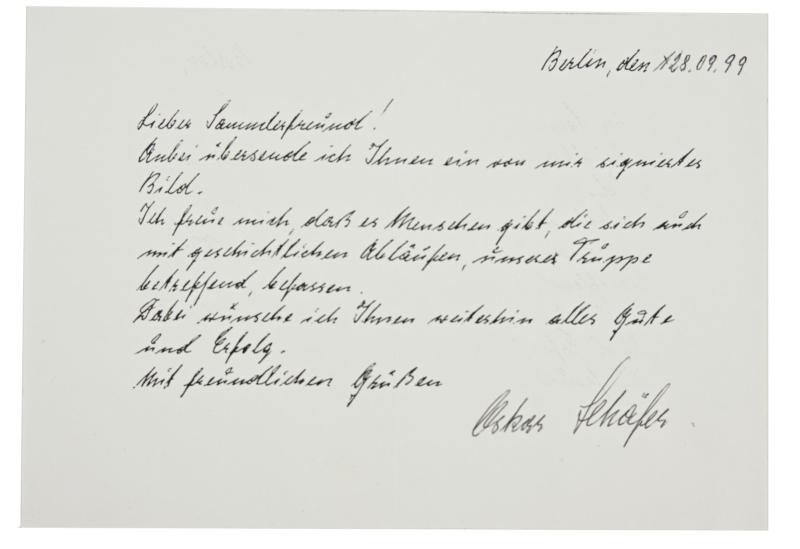 Berlin, den 28.09.99
Lieber Sammlerfreund!
Anbei übersende ich Ihnen ein von mir signiertes
Bild.
Ich freue mich, daß es Menschen gibt, die sich auch
mit geschichtlichen Abläufen, unserer Truppe
betreffend, befassen.
Dabei wünsche ich Ihnen weiterhin alles Gute
und Erfolg.
Mit freundlichen Grüßen
Oskar Schäfer